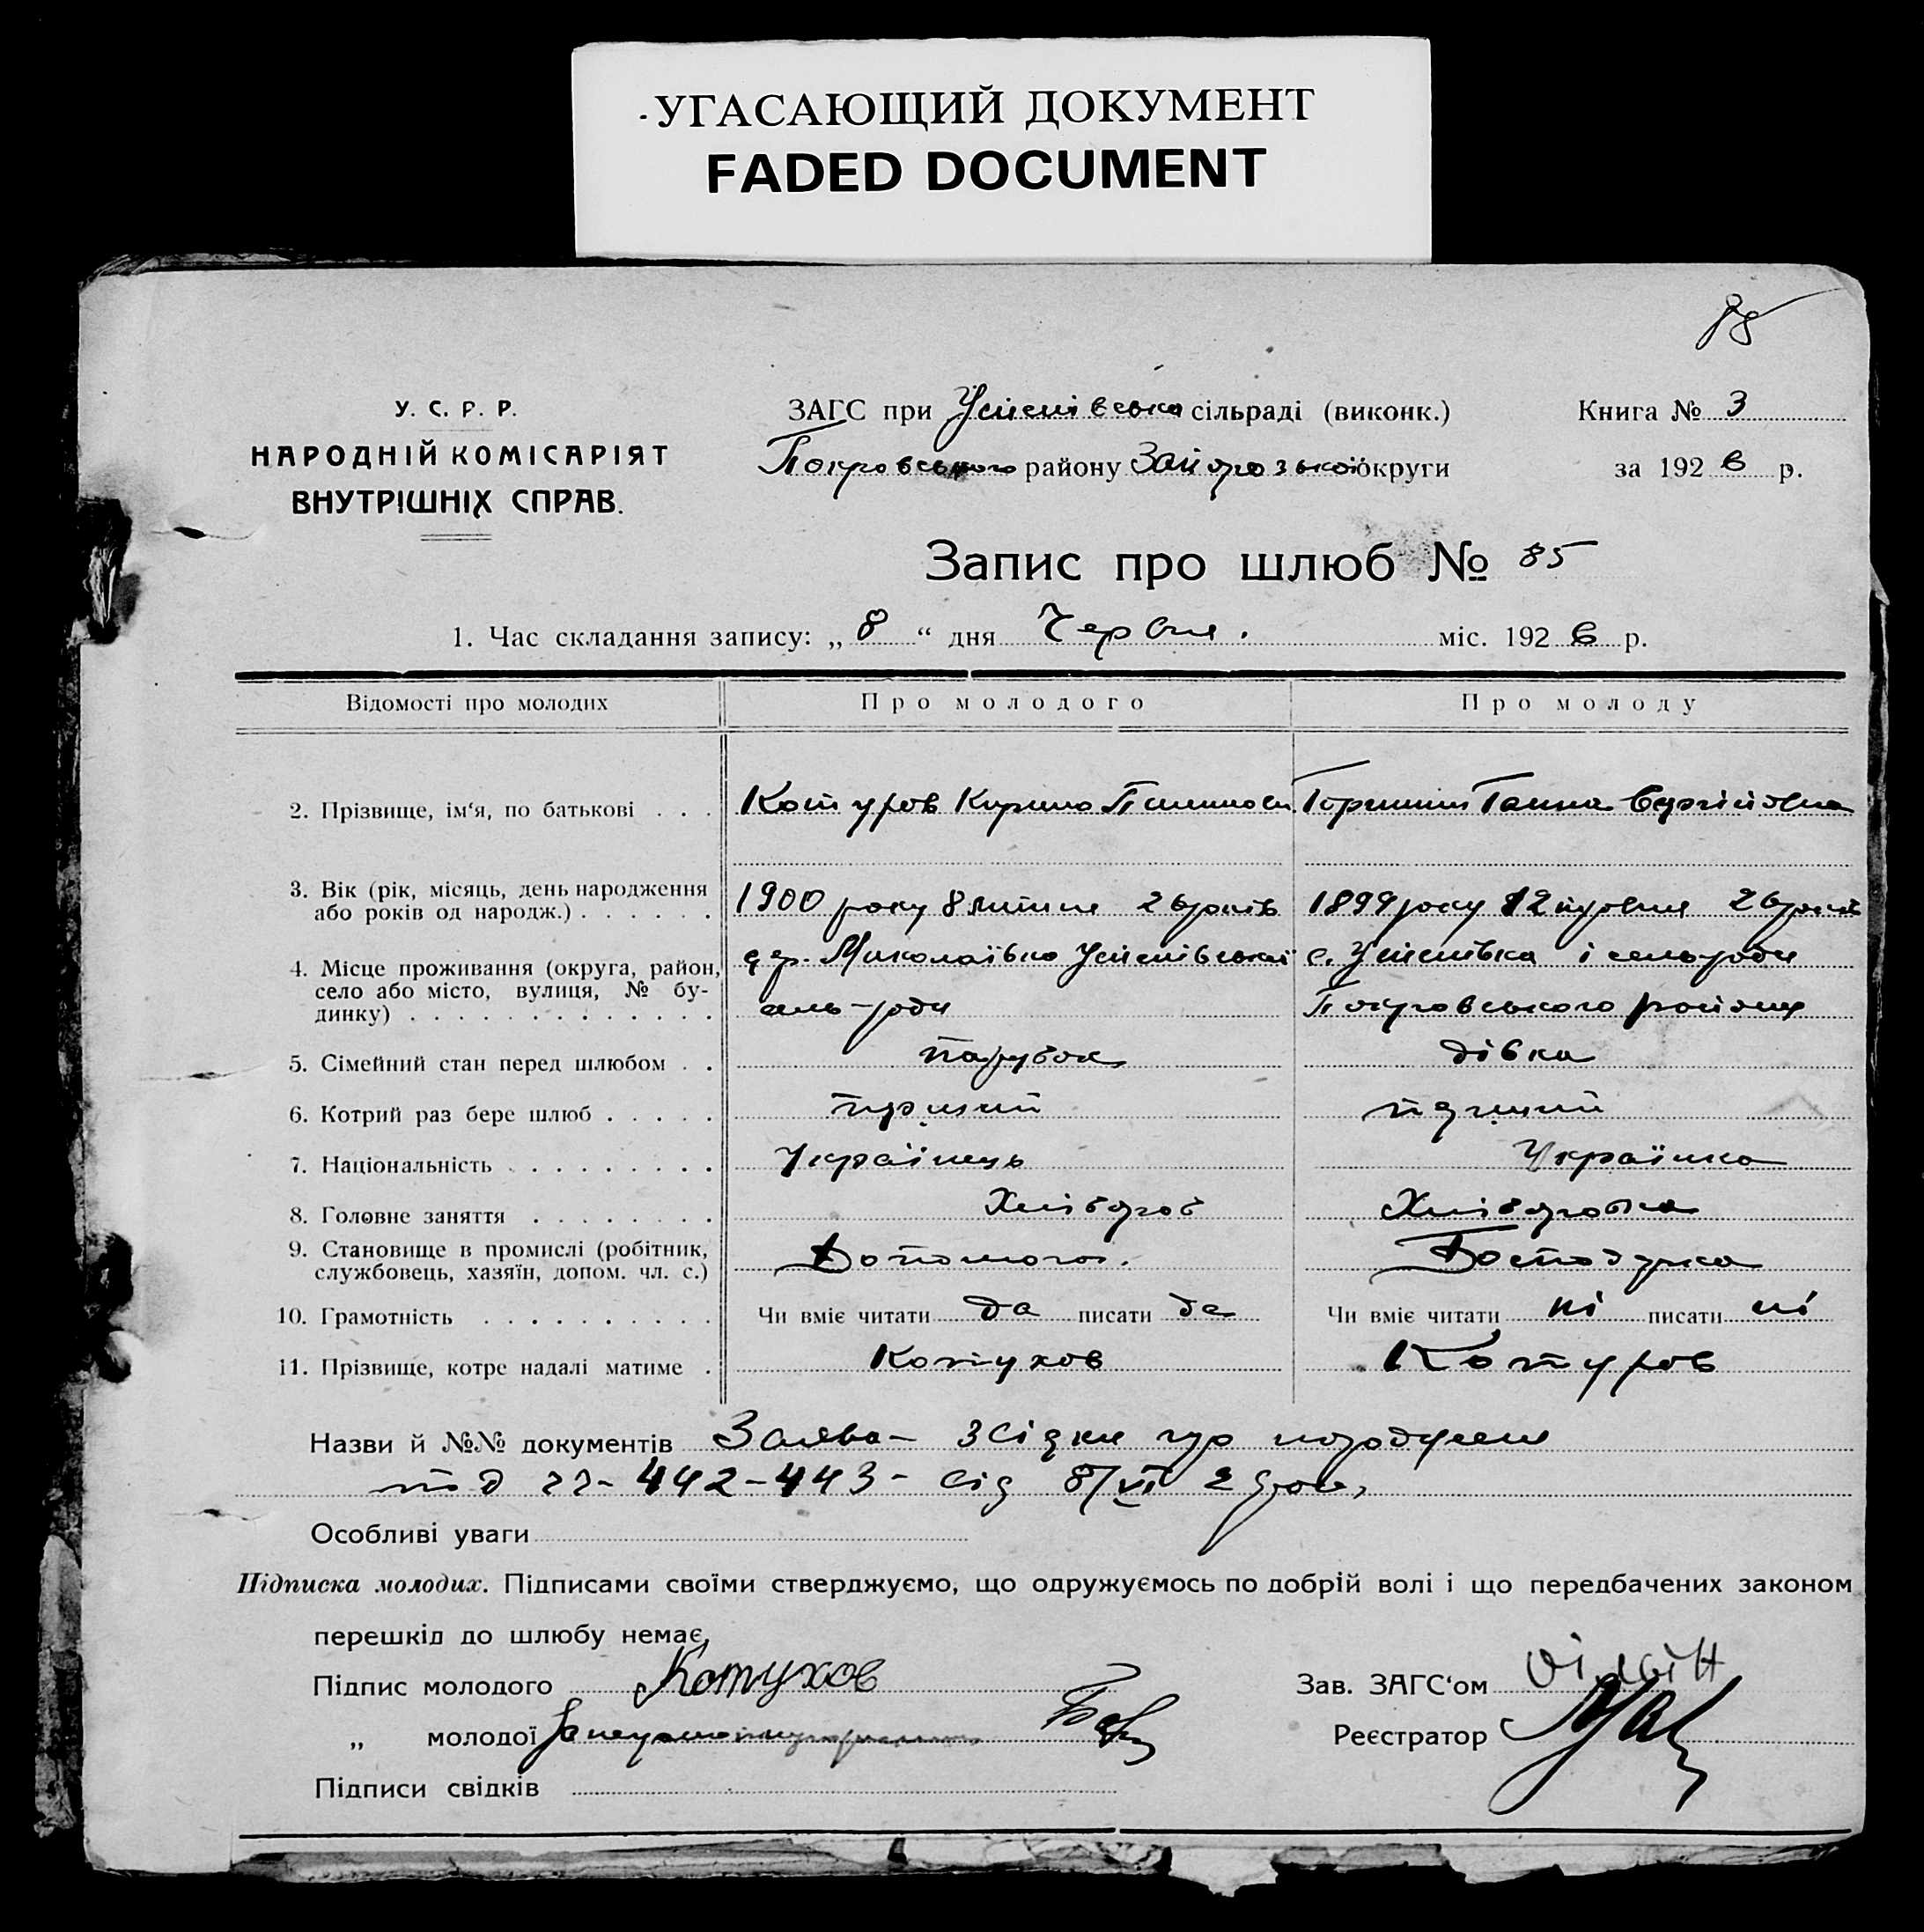 УГАСАЮЩИЙ ДОКУМЕНТ
FADED DOCUMENT
У. С. Р. Р.
НАРОДНІЙ КОМІСАРІЯТ
ВНУТРІШНІХ СПРАВ.
ЗАГС при Успенівська сільраді (виконк.)
Покровського району Запорозької округи
Книга № 3
за 192 6 р.
Запис про шлюб № 85
1. Час складання запису: „ 8 “ дня Червня. міс. 192 6 р.
Відомості про молодих
Про молодого
Про молоду
2. Прізвище, ім‘я, по батькові . . .
Котухов Кирило
Ганна Сергіївна
3. Вік (рік, місяць, день народження
або років од народж.) . . . . . .
1900 року 8 липня 26 років
1899 року 12 26 років
4. Місце проживання (округа, район,
село або місто, вулиця, № бу-
динку) . . . . . . . . . . . . .
дер. Миколаївка Успенівської
сель-ради
с. Успенівка і сель-ради
Покровського району
5. Сімейний стан перед шлюбом . .
парубок
дівка
6. Котрий раз бере шлюб . . . . .
перший
перший
7. Національність . . . . . . . . .
Українець
Українка
8. Головне заняття . . . . . . . .
Хлібороб
Хліборобка
9. Становище в промислі (робітник,
службовець, хазяїн, допом. чл. с.)
Допомога.
Господарка
10. Грамотність . . . . . . . . . .
Чи вміє читати да писати да
Чи вміє читати ні писати ні
11. Прізвище, котре надалі матиме .
Котухов
Котухов
Назви й №№ документів Заява –
442–443 – від 8/VI
Особливі уваги
Підписка молодих. Підписами своїми стверджуємо, що одружуємось по добрій волі і що передбачених законом
перешкід до шлюбу немає.
Підпис молодого Котухов
„ молодої За неграмотну
Підписи свідків
Зав. ЗАГС‘ом
Реєстратор